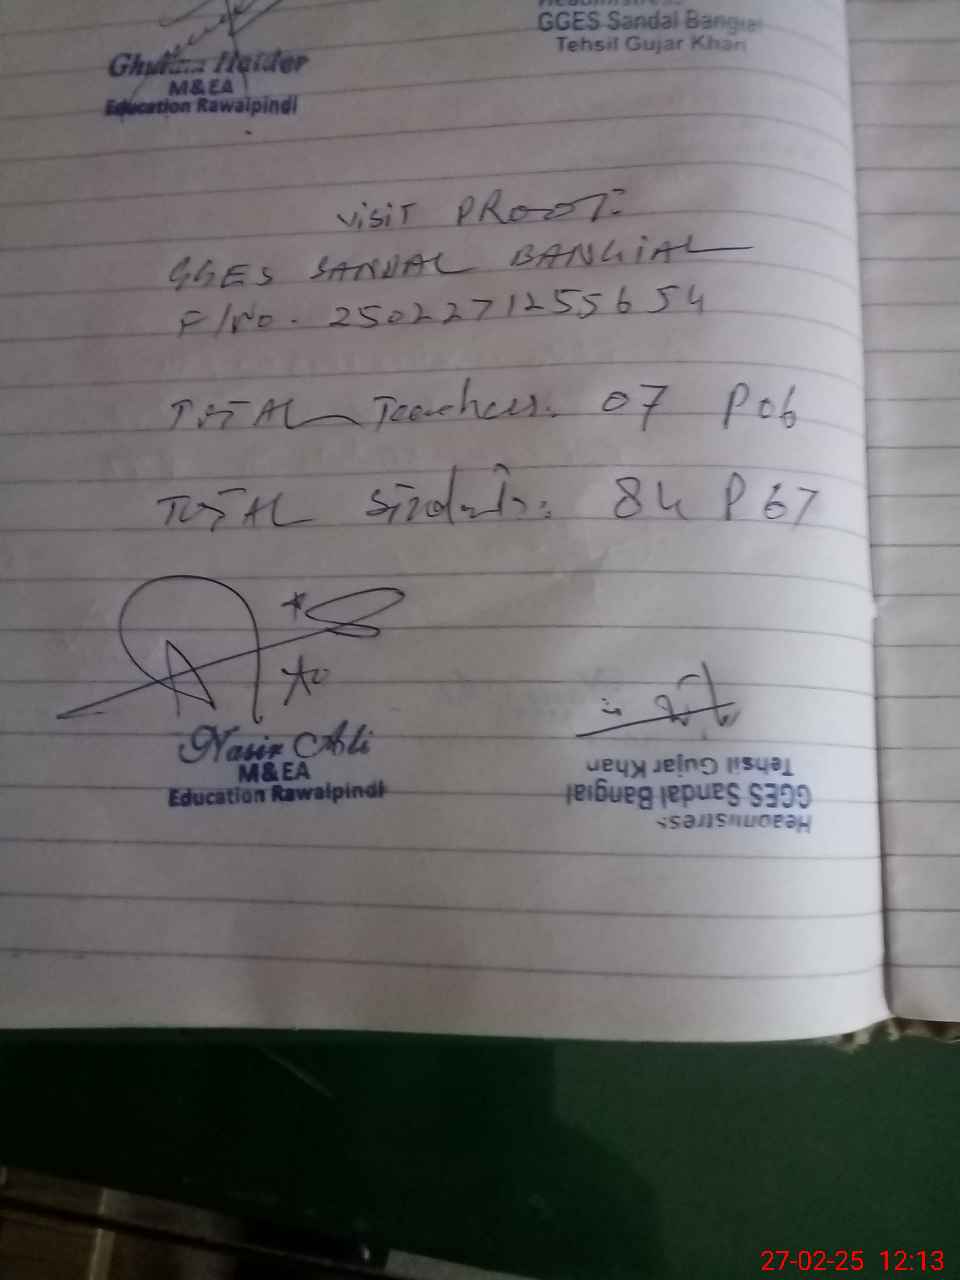 GGES Sandal Bangial
Tehsil Gujar Khan
Haider
M&EA
Education Rawalpindi
VISIT PROOF:
GGES SANDAL BANGIAL
F/No. 2502271255654
TOTAL Teachers: 07 P 06
TOTAL Students: 84 P 67
Nasir Ali
M&EA
Education Rawalpindi
Headmistress
GGES Sandal Bangial
Tehsil Gujar Khan
27-02-25 12:13